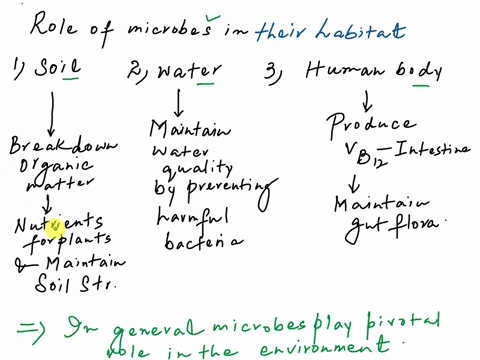 Role of microbes in their habitat
1) Soil
Breakdown
organic
matter
Nutrients
for plants
& Maintain
Soil Str.
2, water
Maintain
water
quality
by preventing
harmful
bacteria
3, Human body
Produce
VB12 - Intestine
Maintain
gut flora.
=) In general microbes play pivotal
role in the environment.